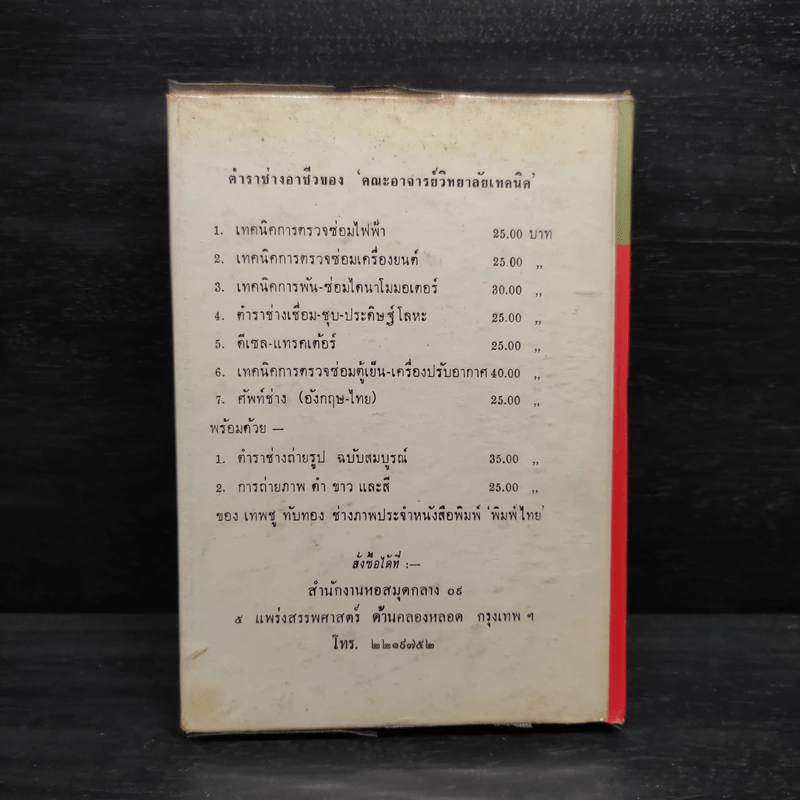 ตำราช่างอาชีวของ ‘คณะอาจารย์วิทยาลัยเทคนิค’
1. เทคนิคการตรวจซ่อมไฟฟ้า 25.00 บาท
2. เทคนิคการตรวจซ่อมเครื่องยนต์ 25.00 ,,
3. เทคนิคการพัน-ซ่อมไดนาโมมอเตอร์ 30.00 ,,
4. ตำราช่างเชื่อม-ชุบ-ประดิษฐ์โลหะ 25.00 ,,
5. ดีเซล-แทรคเต้อร์ 25.00 ,,
6. เทคนิคการตรวจซ่อมตู้เย็น-เครื่องปรับอากาศ 40.00 ,,
7. ศัพท์ช่าง (อังกฤษ-ไทย) 25.00 ,,
พร้อมด้วย —
1. ตำราช่างถ่ายรูป ฉบับสมบูรณ์ 35.00 ,,
2. การถ่ายภาพ ดำ ขาว และสี 25.00 ,,
ของ เทพชู ทับทอง ช่างภาพประจำหนังสือพิมพ์ ‘พิมพ์ไทย’
สั่งซื้อได้ที่ :—
สำนักงานหอสมุดกลาง ๐๙
๕ แพร่งสรรพศาสตร์ ด้านคลองหลอด กรุงเทพ ฯ
โทร. ๒๒๑๙๗๕๒